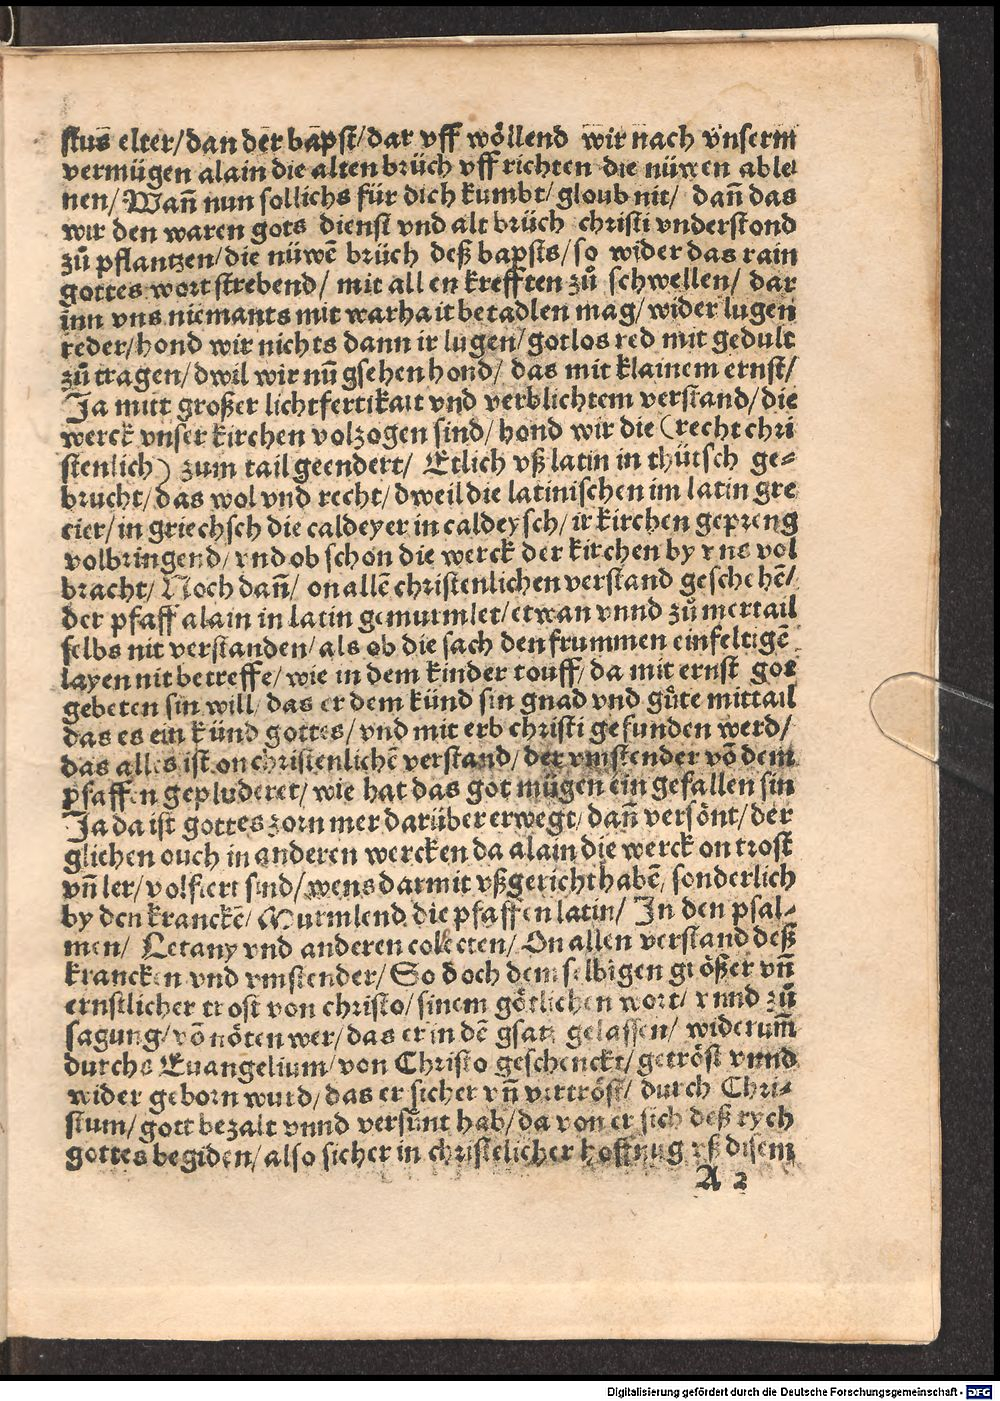 stus elter/dan der bapst/dar vff wöllend wir nach vnserm
vermügen alain die alten brüch vff richten die nüwen able
nen/Wañ nun sollichs für dich kumbt/gloub nit/ dañ das
wir den waren gots dienst vnd alt brüch christi vnderstond
zů pflantzen/die nüwẽ brüch deß bapsts/so wider das rain
gottes wort strebend/ mit all en krefften zů schwellen/ dar
inn vns niemants mit warhait betadlen mag/wider lugen
reder/hond wir nichts dann ir lugen/gotlos red mit gedult
zů tragen/dwil wir nũ gsehen hond/ das mit klainem ernst/
Ja mitt großer lichtfertikait vnd verblichtem verstand/die
werck vnser kirchen volzogen sind/hond wir die (recht chri
stenlich) zum tail geendert/ Etlich vß latin in thütsch ge⸗
brucht/das wol vnd recht/dweil die latinischen im latin gre
cier/in griechsch die caldeyer in caldeysch/ir kirchen gepreng
volbringend/vnd ob schon die werck der kirchen by vns vol
bracht/Noch dañ/ on allẽ christenlichen verstand geschehẽ/
der pfaff alain in latin gemurmlet/etwan vnnd zů mertail
selbs nit verstanden/als ob die sach den frummen einfeltigẽ
layen nit betreffe/wie in dem kinder touff/da mit ernst got
gebeten sin will/das er dem künd sin gnad vnd gůte mittail
das es ein künd gottes/vnd mit erb christi gefunden werd/
das alles ist on christenlichẽ verstand/der vmstender võ dem
pfaffen gepluderet/wie hat das got mügen ein gefallen sin
Ja da ist gottes zorn mer darüber erwegt/dañ versönt/der
glichen ouch in anderen wercken da alain die werck on trost
vñ ler/volfiert sind/wens darmit vßgericht habẽ/sonderlich
by den kranckẽ/Murmlend die pfaffen latin/ In den psal⸗
men/ Letany vnd anderen collecten/On allen verstand deß
krancken vnd vmstender/So doch dem selbigen größer vñ
ernstlicher trost von christo/sinem götlichen wort/vnnd zů
sagung/võ nöten wer/das er in dẽ gsatz gelassen/ widerum̃
durchs Euangelium/von Christo geschenckt/getröst vnnd
wider geborn wurd/das er sicher vñ vertröst/ durch Chri⸗
stum/gott bezalt vnnd versünt hab/da von er sich deß rych
gottes begiden/also sicher in christelicher hoffnug vß disem
A 2
Digitalisierung gefördert durch die Deutsche Forschungsgemeinschaft - DFG